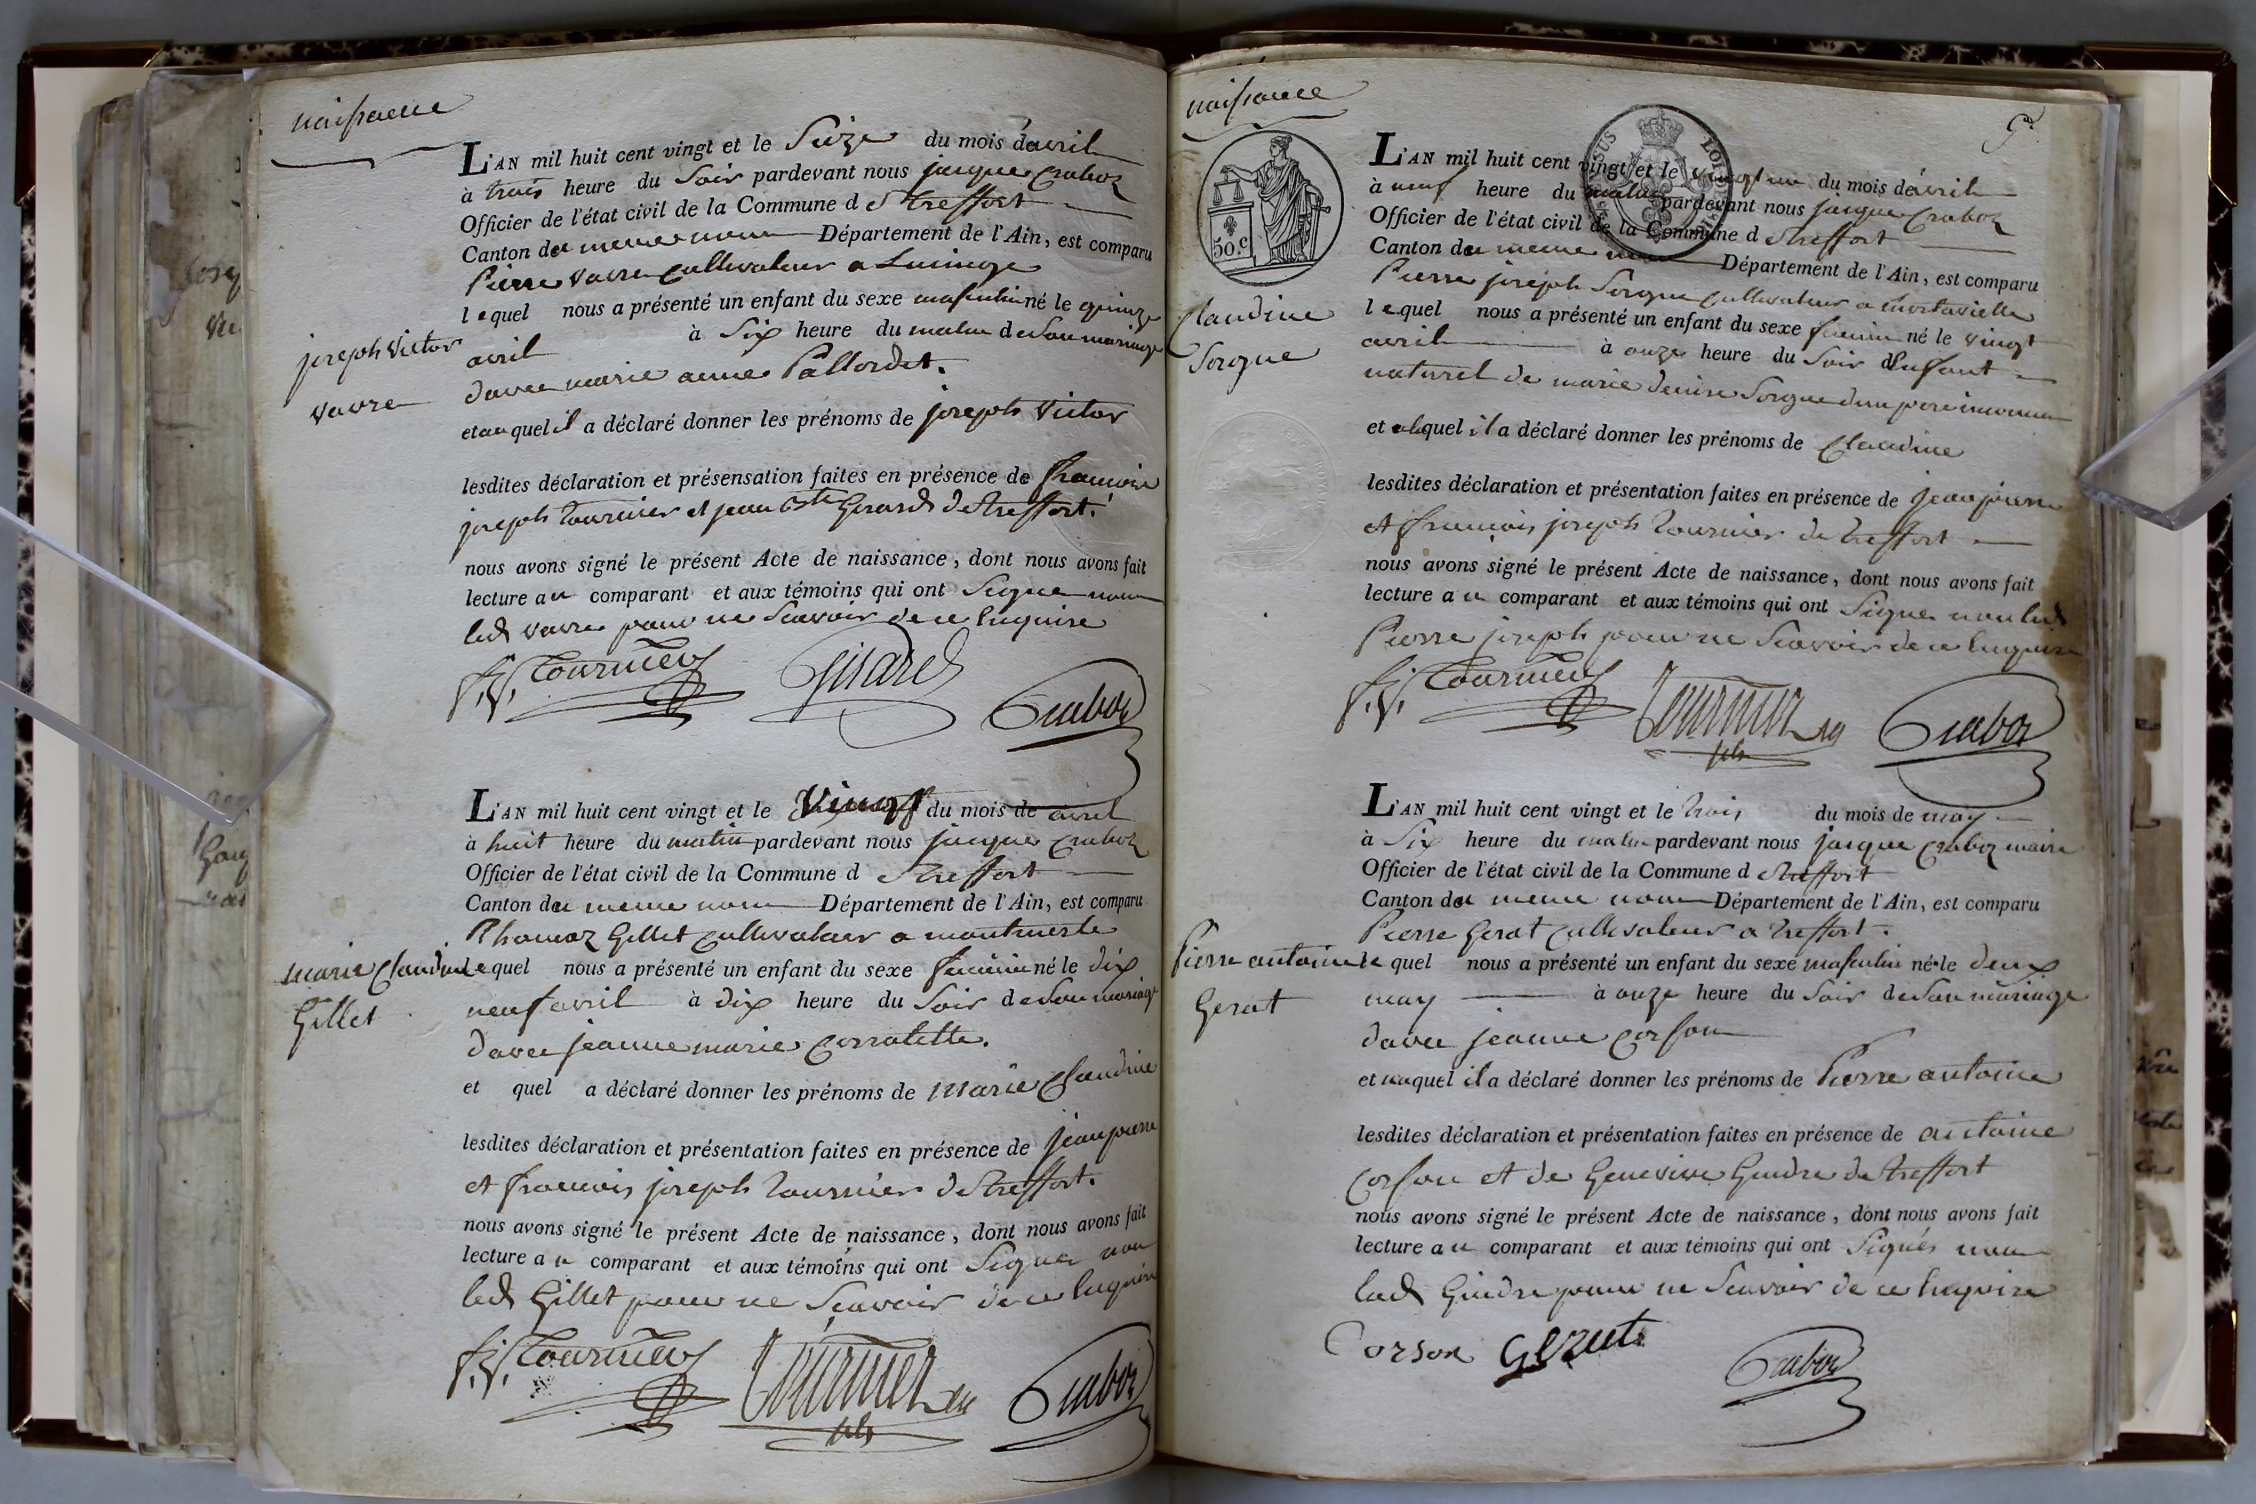 naissance
L'AN mil huit cent vingt et le Seize du mois davril
à trois heure du Soir pardevant nous jacque Craboz
Officier de l'état civil de la Commune d e Treffort
Canton du meme nom Département de l'Ain, est comparu
Pierre vavre Cultivateur a
lequel nous a présenté un enfant du sexe masculin né le quinze
joseph Victor
vavre
avril à Six heure du matin de Son mariage
davec marie anne Pallordet.
et auquel il a déclaré donner les prénoms de joseph Victor
lesdites déclaration et présensation faites en présence de francois
joseph Tournier et jean Bte Girard de Treffort.
nous avons signé le présent Acte de naissance, dont nous avons fait
lecture au comparant et aux témoins qui ont Signe non
led vavre pour ne Scavoir de ce Enquire
f. j. Tournier Girard Craboz
L'AN mil huit cent vingt et le Vingt du mois de avril
à huit heure du matin pardevant nous jacque Craboz
Officier de l'état civil de la Commune d e Treffort
Canton du meme nom Département de l'Ain, est comparu
Thomaz Gillet Cultivateur a montmerle
marie Claudine
Gillet
lequel nous a présenté un enfant du sexe feminin né le dix
neuf avril à dix heure du Soir de Son mariage
davec jeanne marie Corratette.
et quel a déclaré donner les prénoms de marie Claudine
lesdites déclaration et présentation faites en présence de jean pierre
et francois joseph Tournier de Treffort.
nous avons signé le présent Acte de naissance, dont nous avons fait
lecture au comparant et aux témoins qui ont Signer non
led Gillet pour ne Scavoir de ce Enquire
f. j. Tournier Tournier fils Craboz
naissance
50.c
LOI
Claudine
Sorgue
L'AN mil huit cent vingt et le vingt un du mois de avril
à neuf heure du matin pardevant nous jacque Craboz
Officier de l'état civil de la Commune d e Treffort
Canton du meme nom Département de l'Ain, est comparu
Pierre joseph Sorgue Cultivateur a
lequel nous a présenté un enfant du sexe feminin né le vingt
avril à onze heure du Soir Enfant
naturel de marie denise Sorgue dun pere inconnu
et auquel il a déclaré donner les prénoms de Claudine
lesdites déclaration et présentation faites en présence de jean pierre
et francois joseph Tournier de treffort
nous avons signé le présent Acte de naissance, dont nous avons fait
lecture au comparant et aux témoins qui ont Signer non led
Pierre joseph pour ne Scavoir de ce Enquire
f. j. Tournier Tournier fils Craboz
L'AN mil huit cent vingt et le trois du mois de may
à Six heure du matin pardevant nous jacque Craboz maire
Officier de l'état civil de la Commune d e Treffort
Canton du meme nom Département de l'Ain, est comparu
Pierre Gerat Cultivateur a Treffort.
Pierre antoine
Gerat
lequel nous a présenté un enfant du sexe masculin né le deux
may à onze heure du Soir de Son mariage
davec jeanne Corson
et auquel il a déclaré donner les prénoms de Pierre antoine
lesdites déclaration et présentation faites en présence de antoine
Corson et de Genevive Guidre de Treffort
nous avons signé le présent Acte de naissance, dont nous avons fait
lecture au comparant et aux témoins qui ont Signés non
lad Guidre pour ne Scavoir de ce Enquire
Corson Gerat Craboz